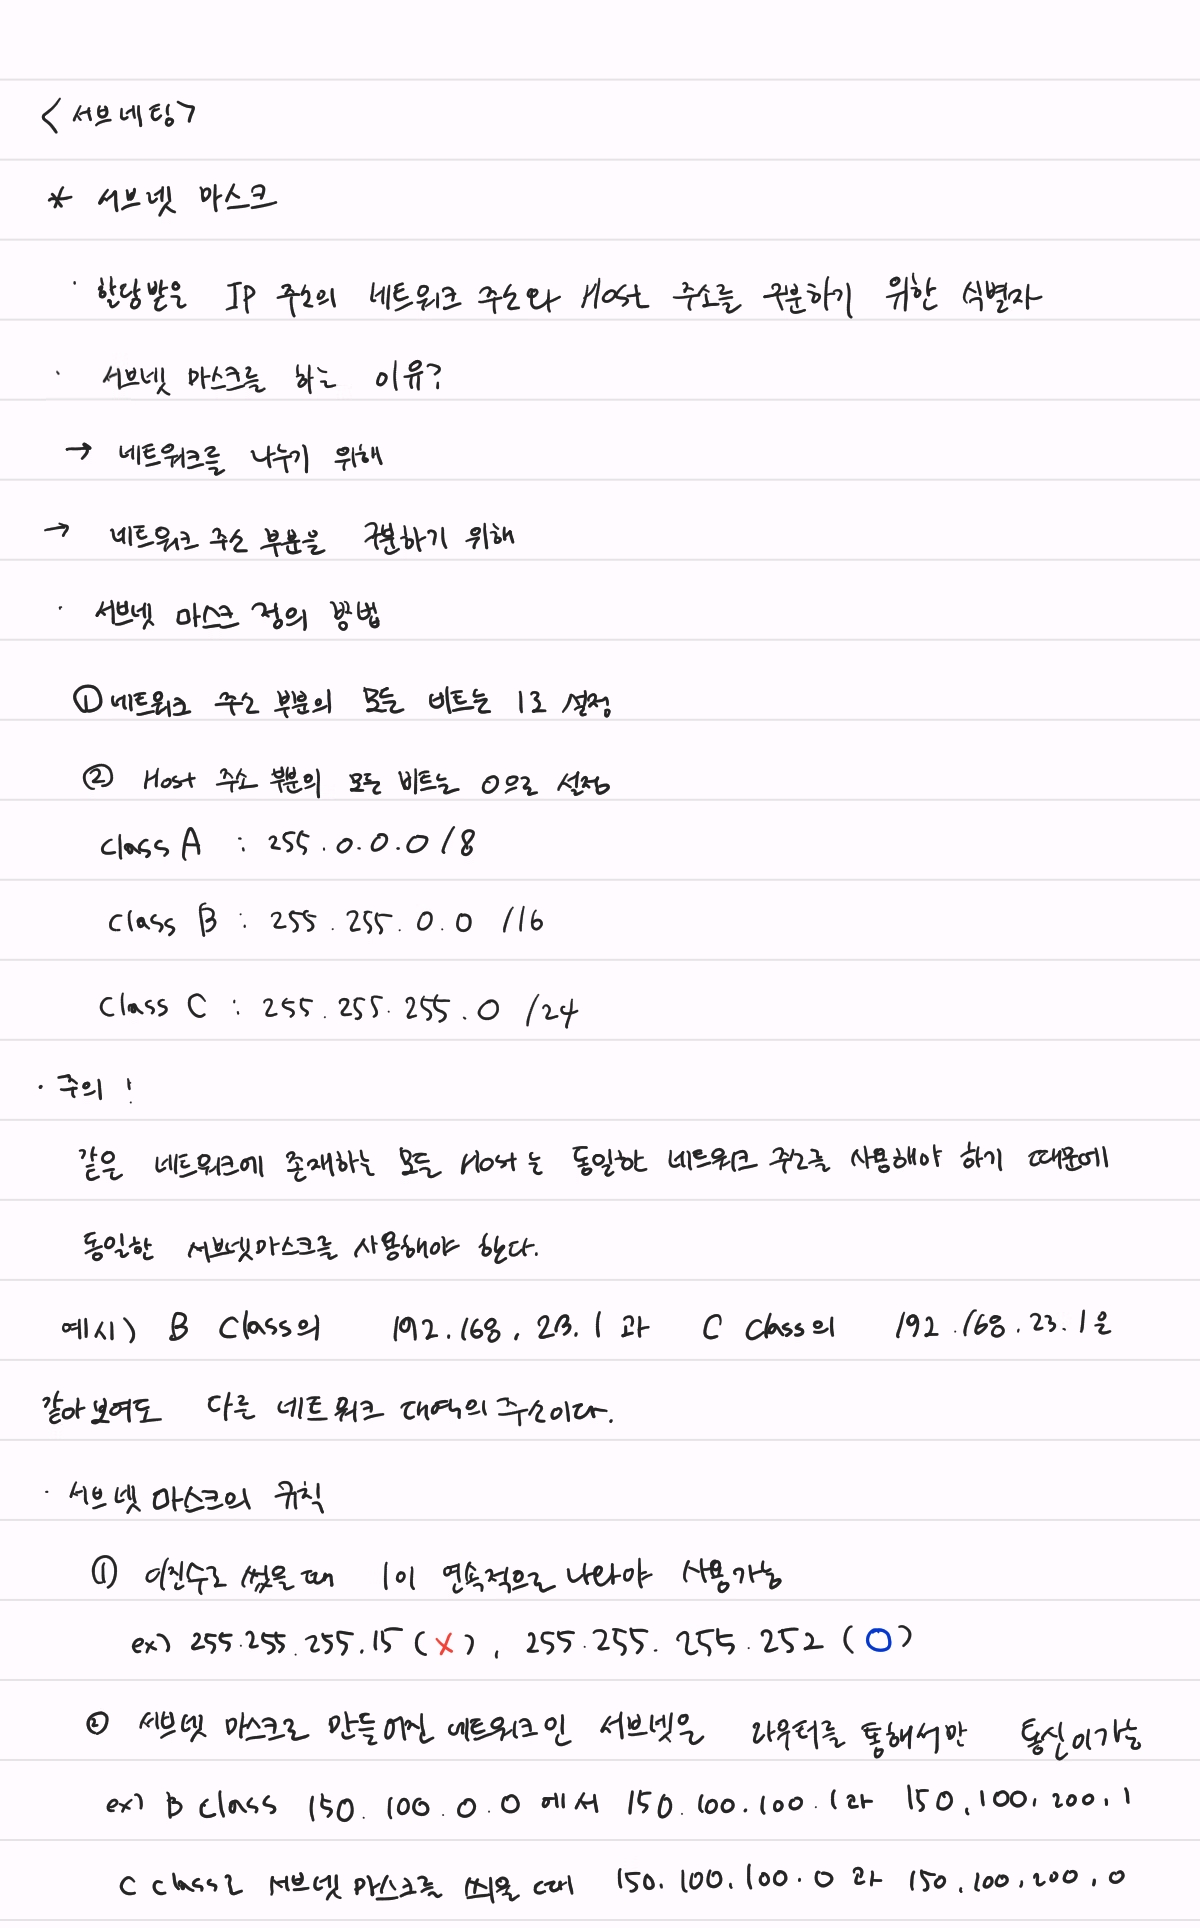 <서브네팅>
* 서브넷 마스크
· 할당받은 IP 주소의 네트워크 주소와 Host 주소를 구분하기 위한 식별자
· 서브넷 마스크를 하는 이유?
→ 네트워크를 나누기 위해
→ 네트워크 주소 부분을 구분하기 위해
· 서브넷 마스크 정의 방법
① 네트워크 주소 부분의 모든 비트는 1로 설정
② Host 주소 부분의 모든 비트는 0으로 설정
class A : 255.0.0.0 /8
class B : 255.255.0.0 /16
class C : 255.255.255.0 /24
· 주의!
같은 네트워크에 존재하는 모든 Host는 동일한 네트워크 주소를 사용해야 하기 때문에
동일한 서브넷마스크를 사용해야 한다.
예시) B Class의 192.168.23.1과 C Class의 192.168.23.1은
같아보여도 다른 네트워크 대역의 주소이다.
· 서브넷 마스크의 규칙
① 이진수로 썼을 때 1이 연속적으로 나와야 사용가능
ex) 255.255.255.15 (X), 255.255.255.252 (O)
② 서브넷 마스크로 만들어진 네트워크인 서브넷은 라우터를 통해서만 통신이가능
ex) B class 150.100.0.0에서 150.100.100.1과 150.100.200.1
C class로 서브넷 마스크를 씌울 때 150.100.100.0과 150.100.200.0